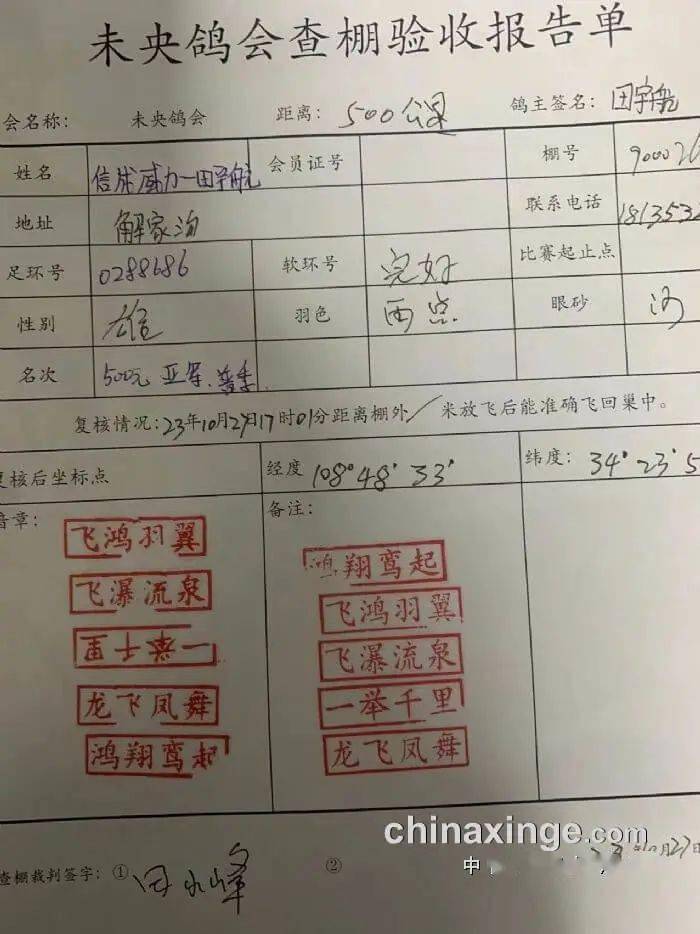 未央鸽会查棚验收报告单
会名称: 未央鸽会 距离: 500公里 鸽主签名: 田宇航
姓名 信成威力-田宇航 会员证号 棚号 900026
地址 解家沟 联系电话 1813532
足环号 0288686 软环号 完好 比赛起止点
性别 雄 羽色 雨点 眼砂 沙
名次 500元 亚军、普季
复核情况:23年10月27日17时01分距离棚外/米放飞后能准确飞回巢中。
复核后坐标点 经度 108°48′33′ 纬度: 34°23′5
音章: 备注:
飞鸿羽翼
飞瀑流泉
一举千里
龙飞凤舞
鸿翔鸾起
鸿翔鸾起
飞鸿羽翼
飞瀑流泉
一举千里
龙飞凤舞
chinaxinge.com
中
查棚裁判签字: ① 田永峰 ② 月27日